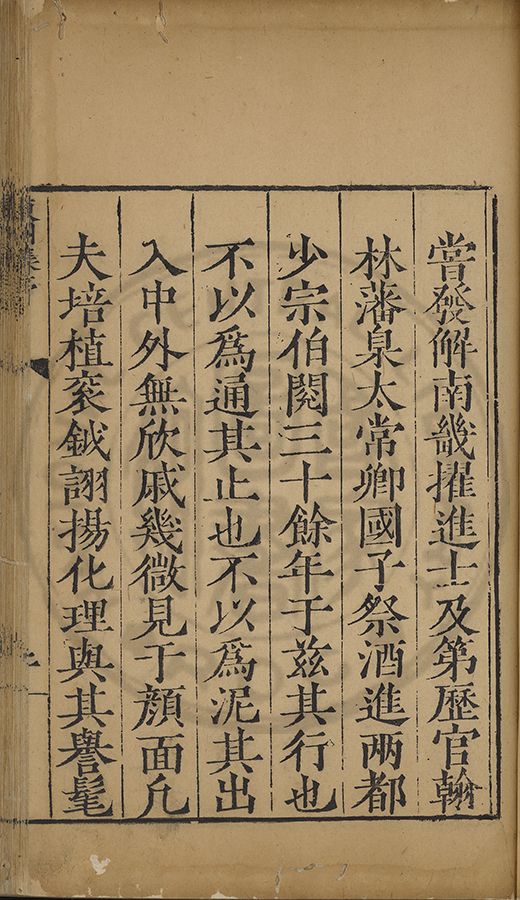 嘗發解南畿擢進士及第歷官翰
林藩臬太常卿國子祭酒進兩都
少宗伯閱三十餘年于兹其行也
不以爲通其止也不以爲泥其出
入中外無欣戚幾微見于顔面凡
夫培植衮鉞詡揚化理與其譽髦